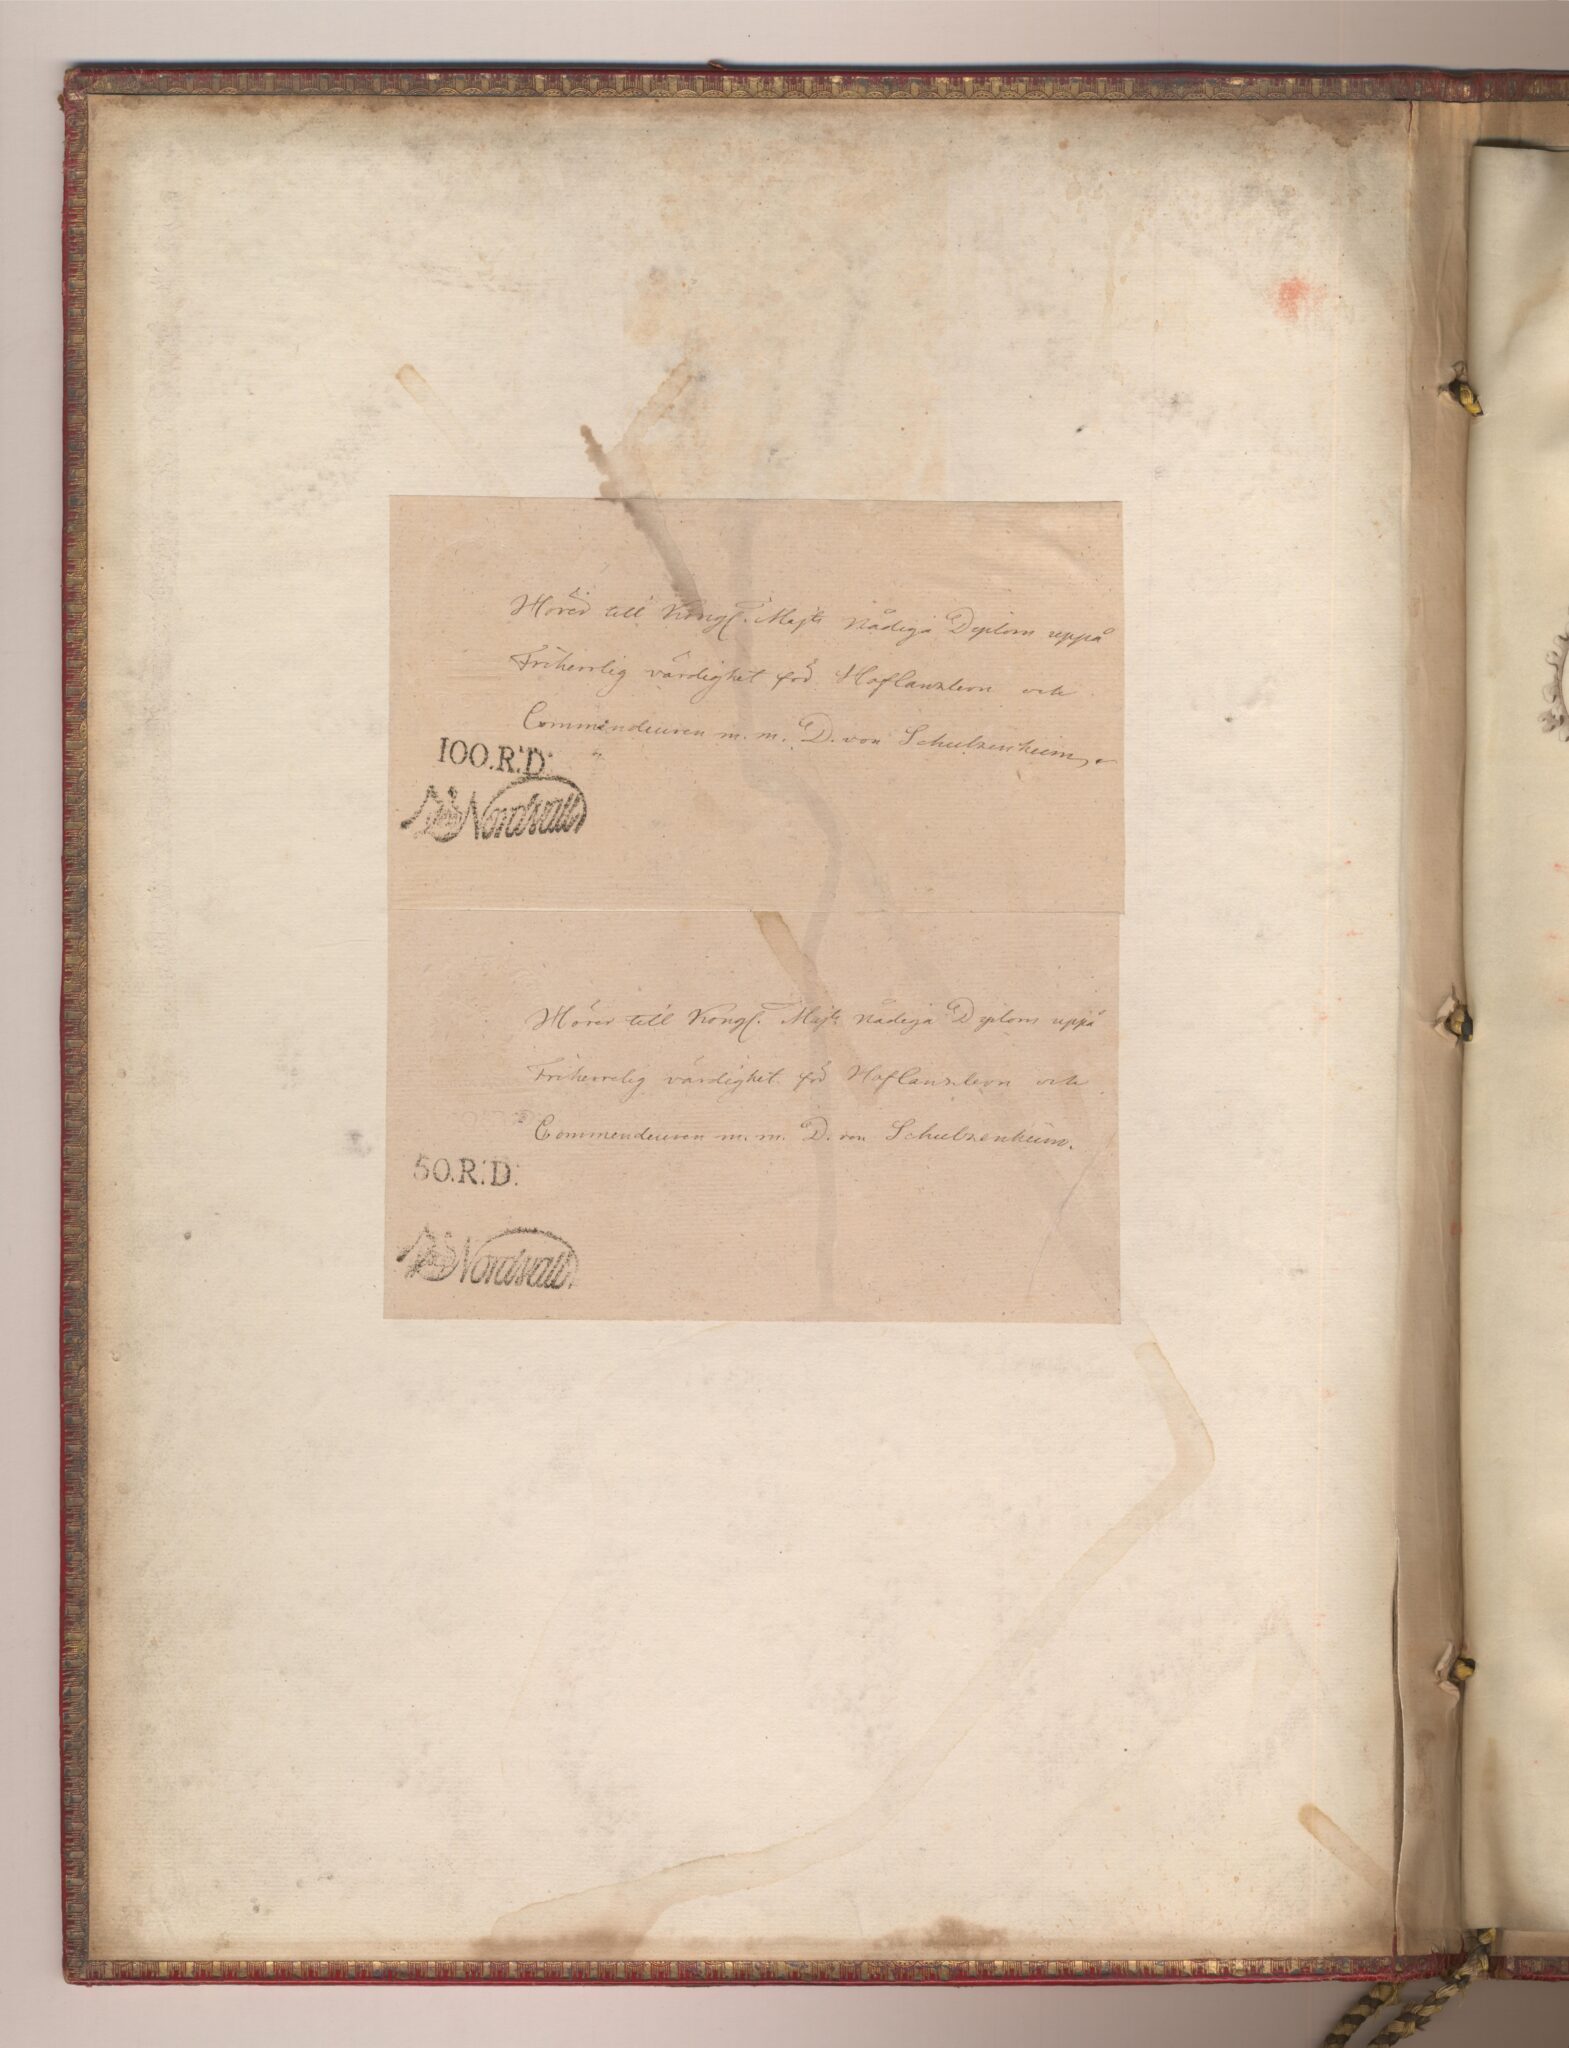 Hörer till Kongl. Majts Nådiga Diplom uppå
Friherrlig värdighet för Hofcanzleren och
Commendeuren m. m. D. von Schulzenheim.
100.R:D:
Nordvall
Hörer till Kongl. Majts Nådiga Diplom uppå
Friherrelig värdighet för Hofcanzleren och
Commendeuren m. m. D. von Schulzenheim.
50.R:D:
Nordvall